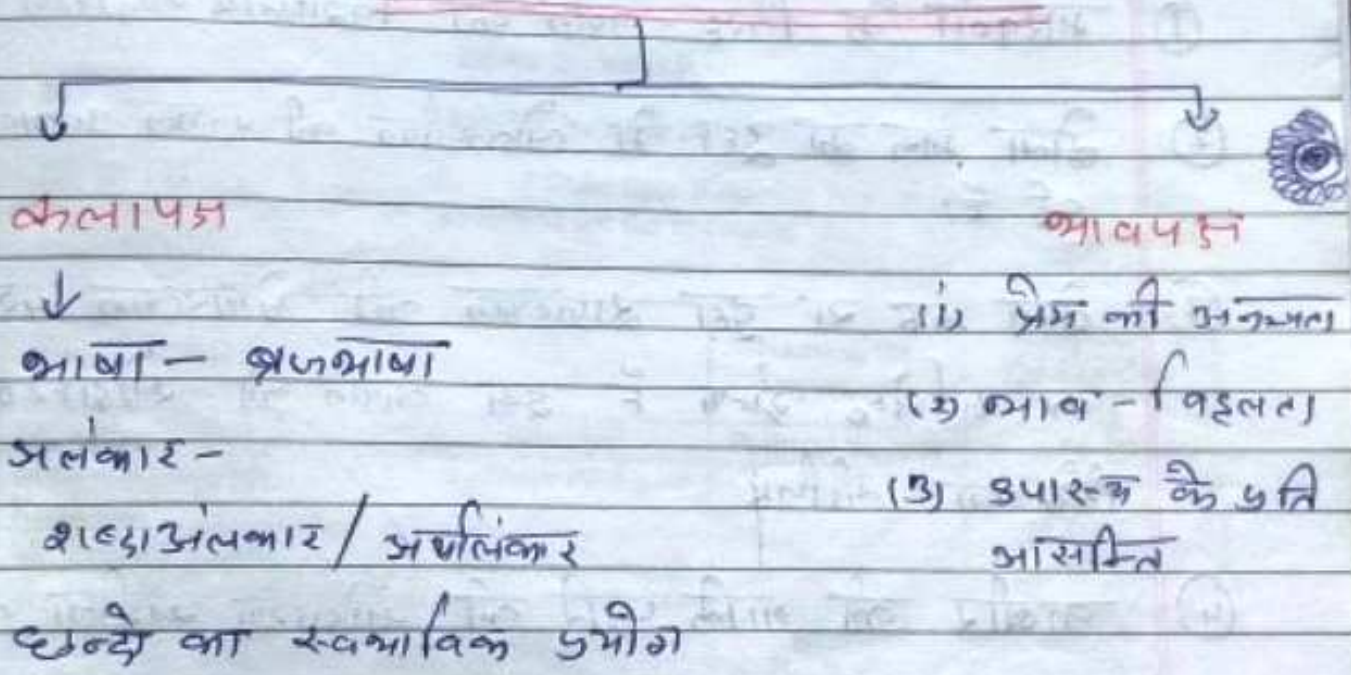 कलापक्ष
भाषा - ब्रजभाषा
अलंकार -
शब्दाअंलकार / अर्थालंकार
छन्दो का स्वभाविक प्रयोग
भावपक्ष
(1) प्रेम की अनन्यता
(2) भाव - विह्लता
(3) उपास्य के प्रति
आसक्ति